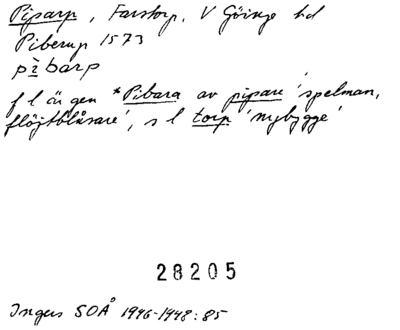 Piparp, Farstorp, V Göinge hd
Piberup 1573
pìbarp
f l är gen *Pibara av pipare 'spelman,
flöjtblåsare', s l torp 'nybygge'
28205
Ingers SOÅ 1946-1948:85